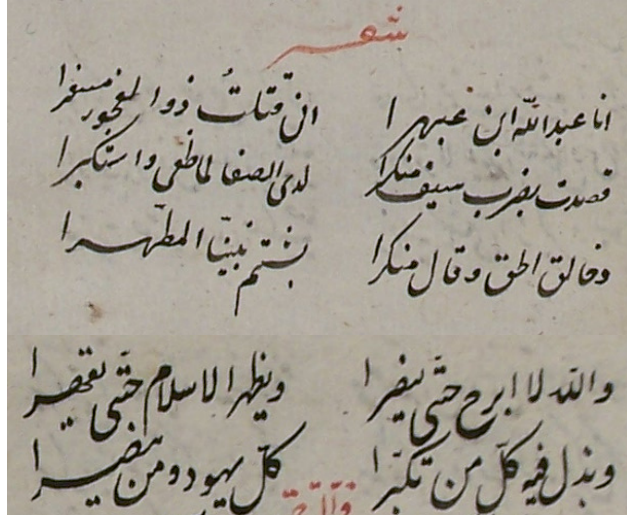 شعر
انا عبدالله ابن عبهرا انى قتلت ذوا لفجور مسفرا
قصدت بضرب سيف منكرا لدى الصفا لما طغى واستكبرا
وخالق الحق وقال منكرا بشتم نبينا المطهرا
والله لا ابرح حتى ينصرا ويظهر الاسلام حتى يقحصرا
وبذل فيه كل من تكبرا كل يهود ومن